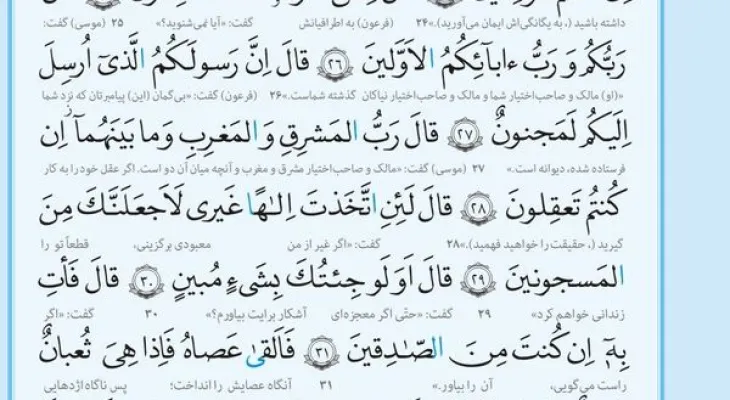 داشته باشید (، به یگانگی‌اش ایمان می‌آورید).» ۲۴ (فرعون) به اطرافیانش گفت: «آیا نمی‌شنوید؟» ۲۵ (موسی) گفت:
رَبُّكُم وَ رَبُّ ءابآئِكُمُ الاَوَّلينَ ﴿۲۶﴾ قالَ اِنَّ رَسولَكُمُ الَّذىٓ اُرسِلَ
«(او) مالک و صاحب‌اختیار شما و مالک و صاحب‌اختیار نیاکان گذشته شماست.» ۲۶ (فرعون) گفت: «بی‌گمان (این) پیامبرتان که نزد شما
اِلَيكُم لَمَجنونٌ ﴿۲۷﴾ قالَ رَبُّ المَشرِقِ وَ المَغرِبِ وَ ما بَينَهُمآ اِن
فرستاده شده، دیوانه است.» ۲۷ (موسی) گفت: «مالک و صاحب‌اختیار مشرق و مغرب و آنچه میان آن دو است. اگر عقل خود را به کار
كُنتُم تَعقِلونَ ﴿۲۸﴾ قالَ لَئِنِ اتَّخَذتَ اِلٰهًا غَيرى لَاَجعَلَنَّكَ مِنَ
گیرید (، حقیقت را خواهید فهمید).» ۲۸ گفت: «اگر غیر از من معبودی برگزینی، قطعاً تو را
المَسجونينَ ﴿۲۹﴾ قالَ اَوَلَو جِئتُكَ بِشَىءٍ مُبينٍ ﴿۳۰﴾ قالَ فَأتِ
زندانی خواهم کرد» ۲۹ گفت: «حتّی اگر معجزه‌ای آشکار برایت بیاورم؟» ۳۰ گفت: «اگر
بِهٖٓ اِن كُنتَ مِنَ الصّٰدِقينَ ﴿۳۱﴾ فَاَلقىٰ عَصاهُ فَاِذا هِىَ ثُعبانٌ
راست می‌گویی، آن را بیاور.» ۳۱ آنگاه عصایش را انداخت؛ پس ناگاه اژدهایی